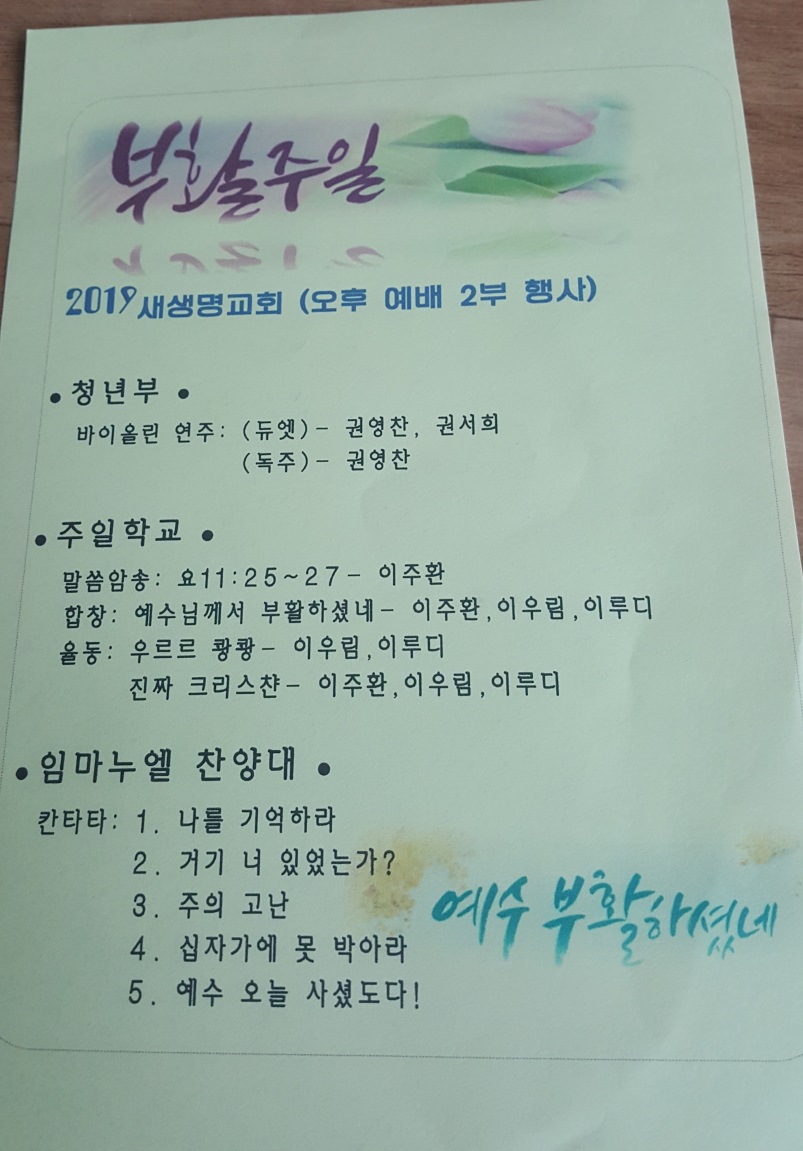 부활주일
2019 새생명교회 (오후 예배 2부 행사)
• 청년부 •
바이올린 연주: (듀엣)- 권영찬, 권서희
(독주)- 권영찬
• 주일학교 •
말씀암송: 요11:25~27- 이주환
합창: 예수님께서 부활하셨네- 이주환,이우림,이루디
율동: 우르르 쾅쾅- 이우림,이루디
진짜 크리스챤- 이주환,이우림,이루디
• 임마누엘 찬양대 •
칸타타: 1. 나를 기억하라
2. 거기 너 있었는가?
3. 주의 고난
4. 십자가에 못 박아라
5. 예수 오늘 사셨도다!
예수 부활하셨네